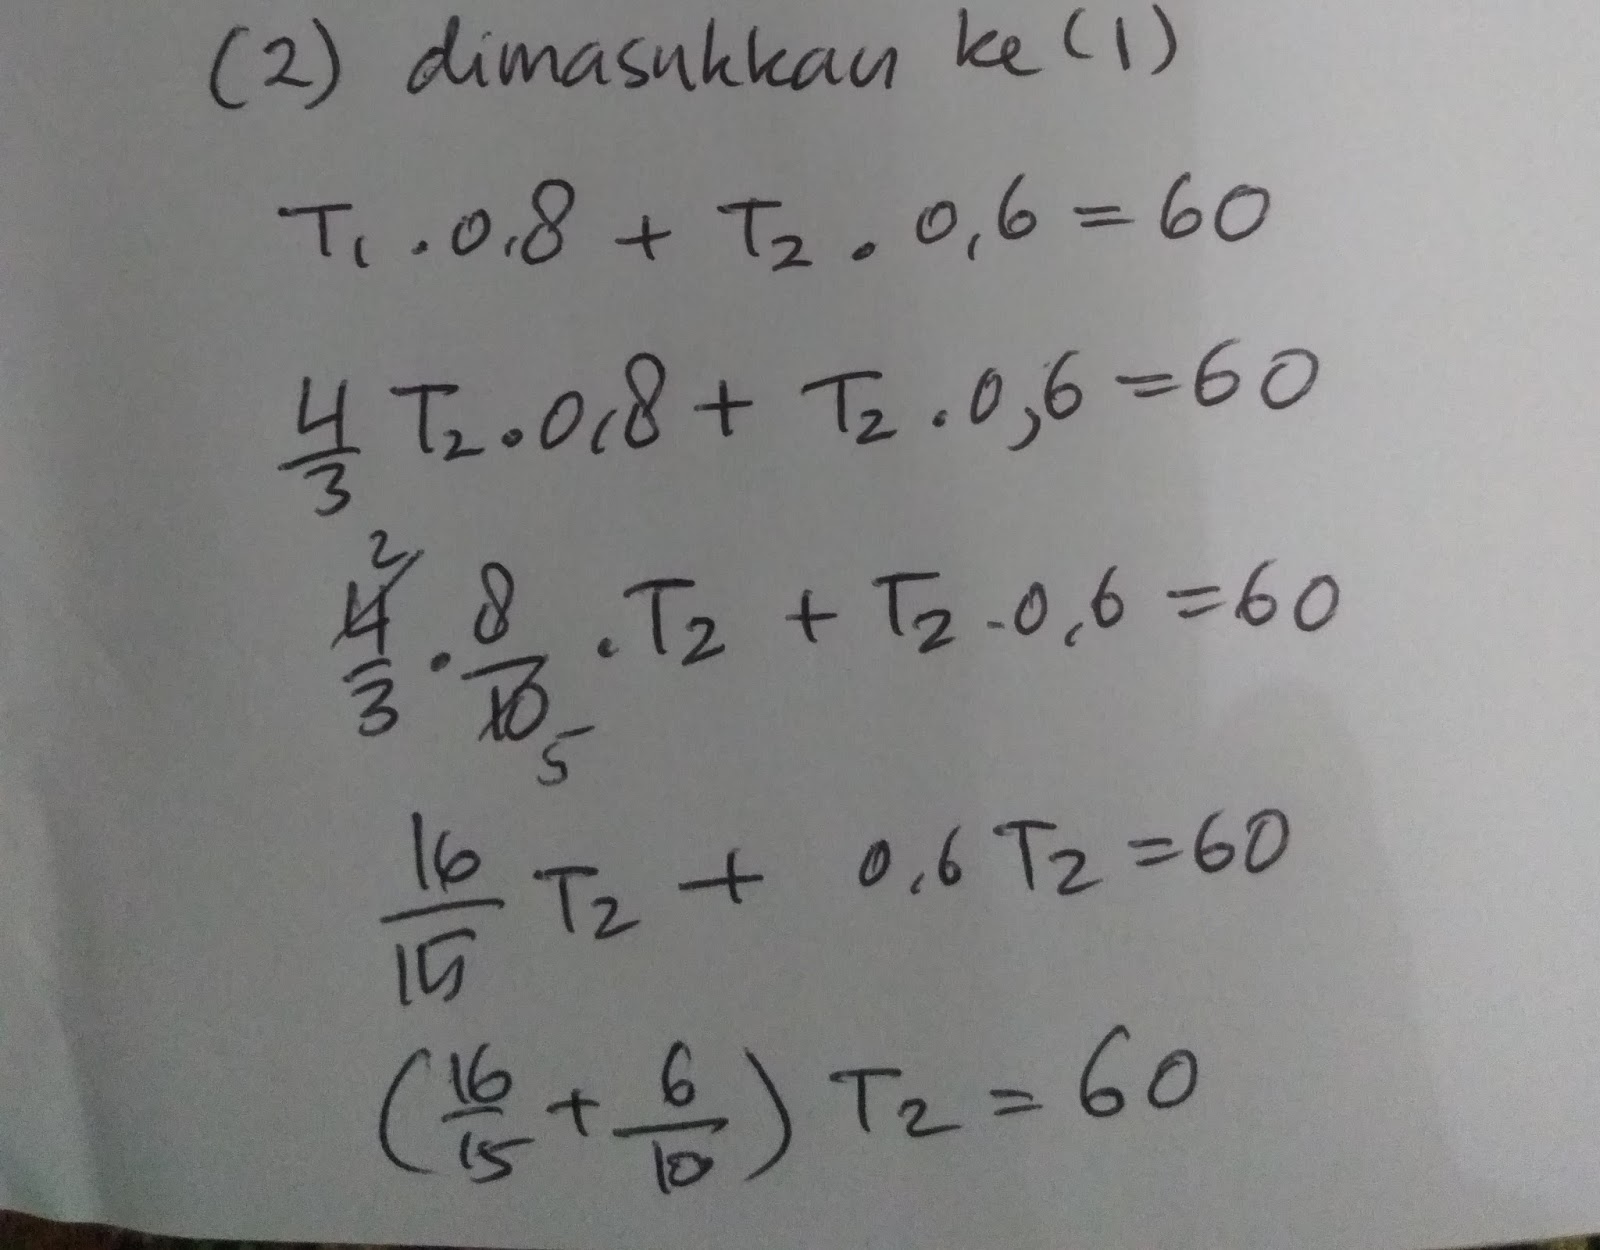 (2) dimasukkan ke (1)
T₁ . 0,8 + T₂ . 0,6 = 60
4/3 T₂ . 0,8 + T₂ . 0,6 = 60
2
4/3 . 8/10 . T₂ + T₂ . 0,6 = 60
5
16/15 T₂ + 0,6 T₂ = 60
(16/15 + 6/10) T₂ = 60